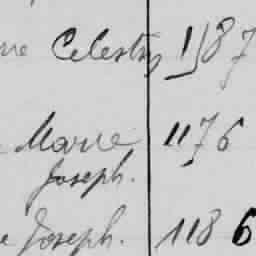 Celestin 1187
Marie 1176
Joseph.
e Joseph. 1186